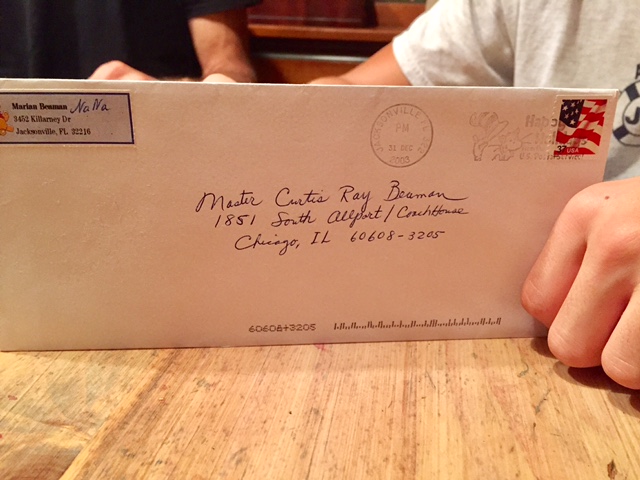 Marian Beaman NaNa
3452 Killarney Dr
Jacksonville, FL 32216
JACKSONVILLE FL
PM
31 DEC
2003
37
USA
Master Curtis Ray Beaman
1851 South Allport / CoachHouse
Chicago, IL 60608-3205
60608+3205